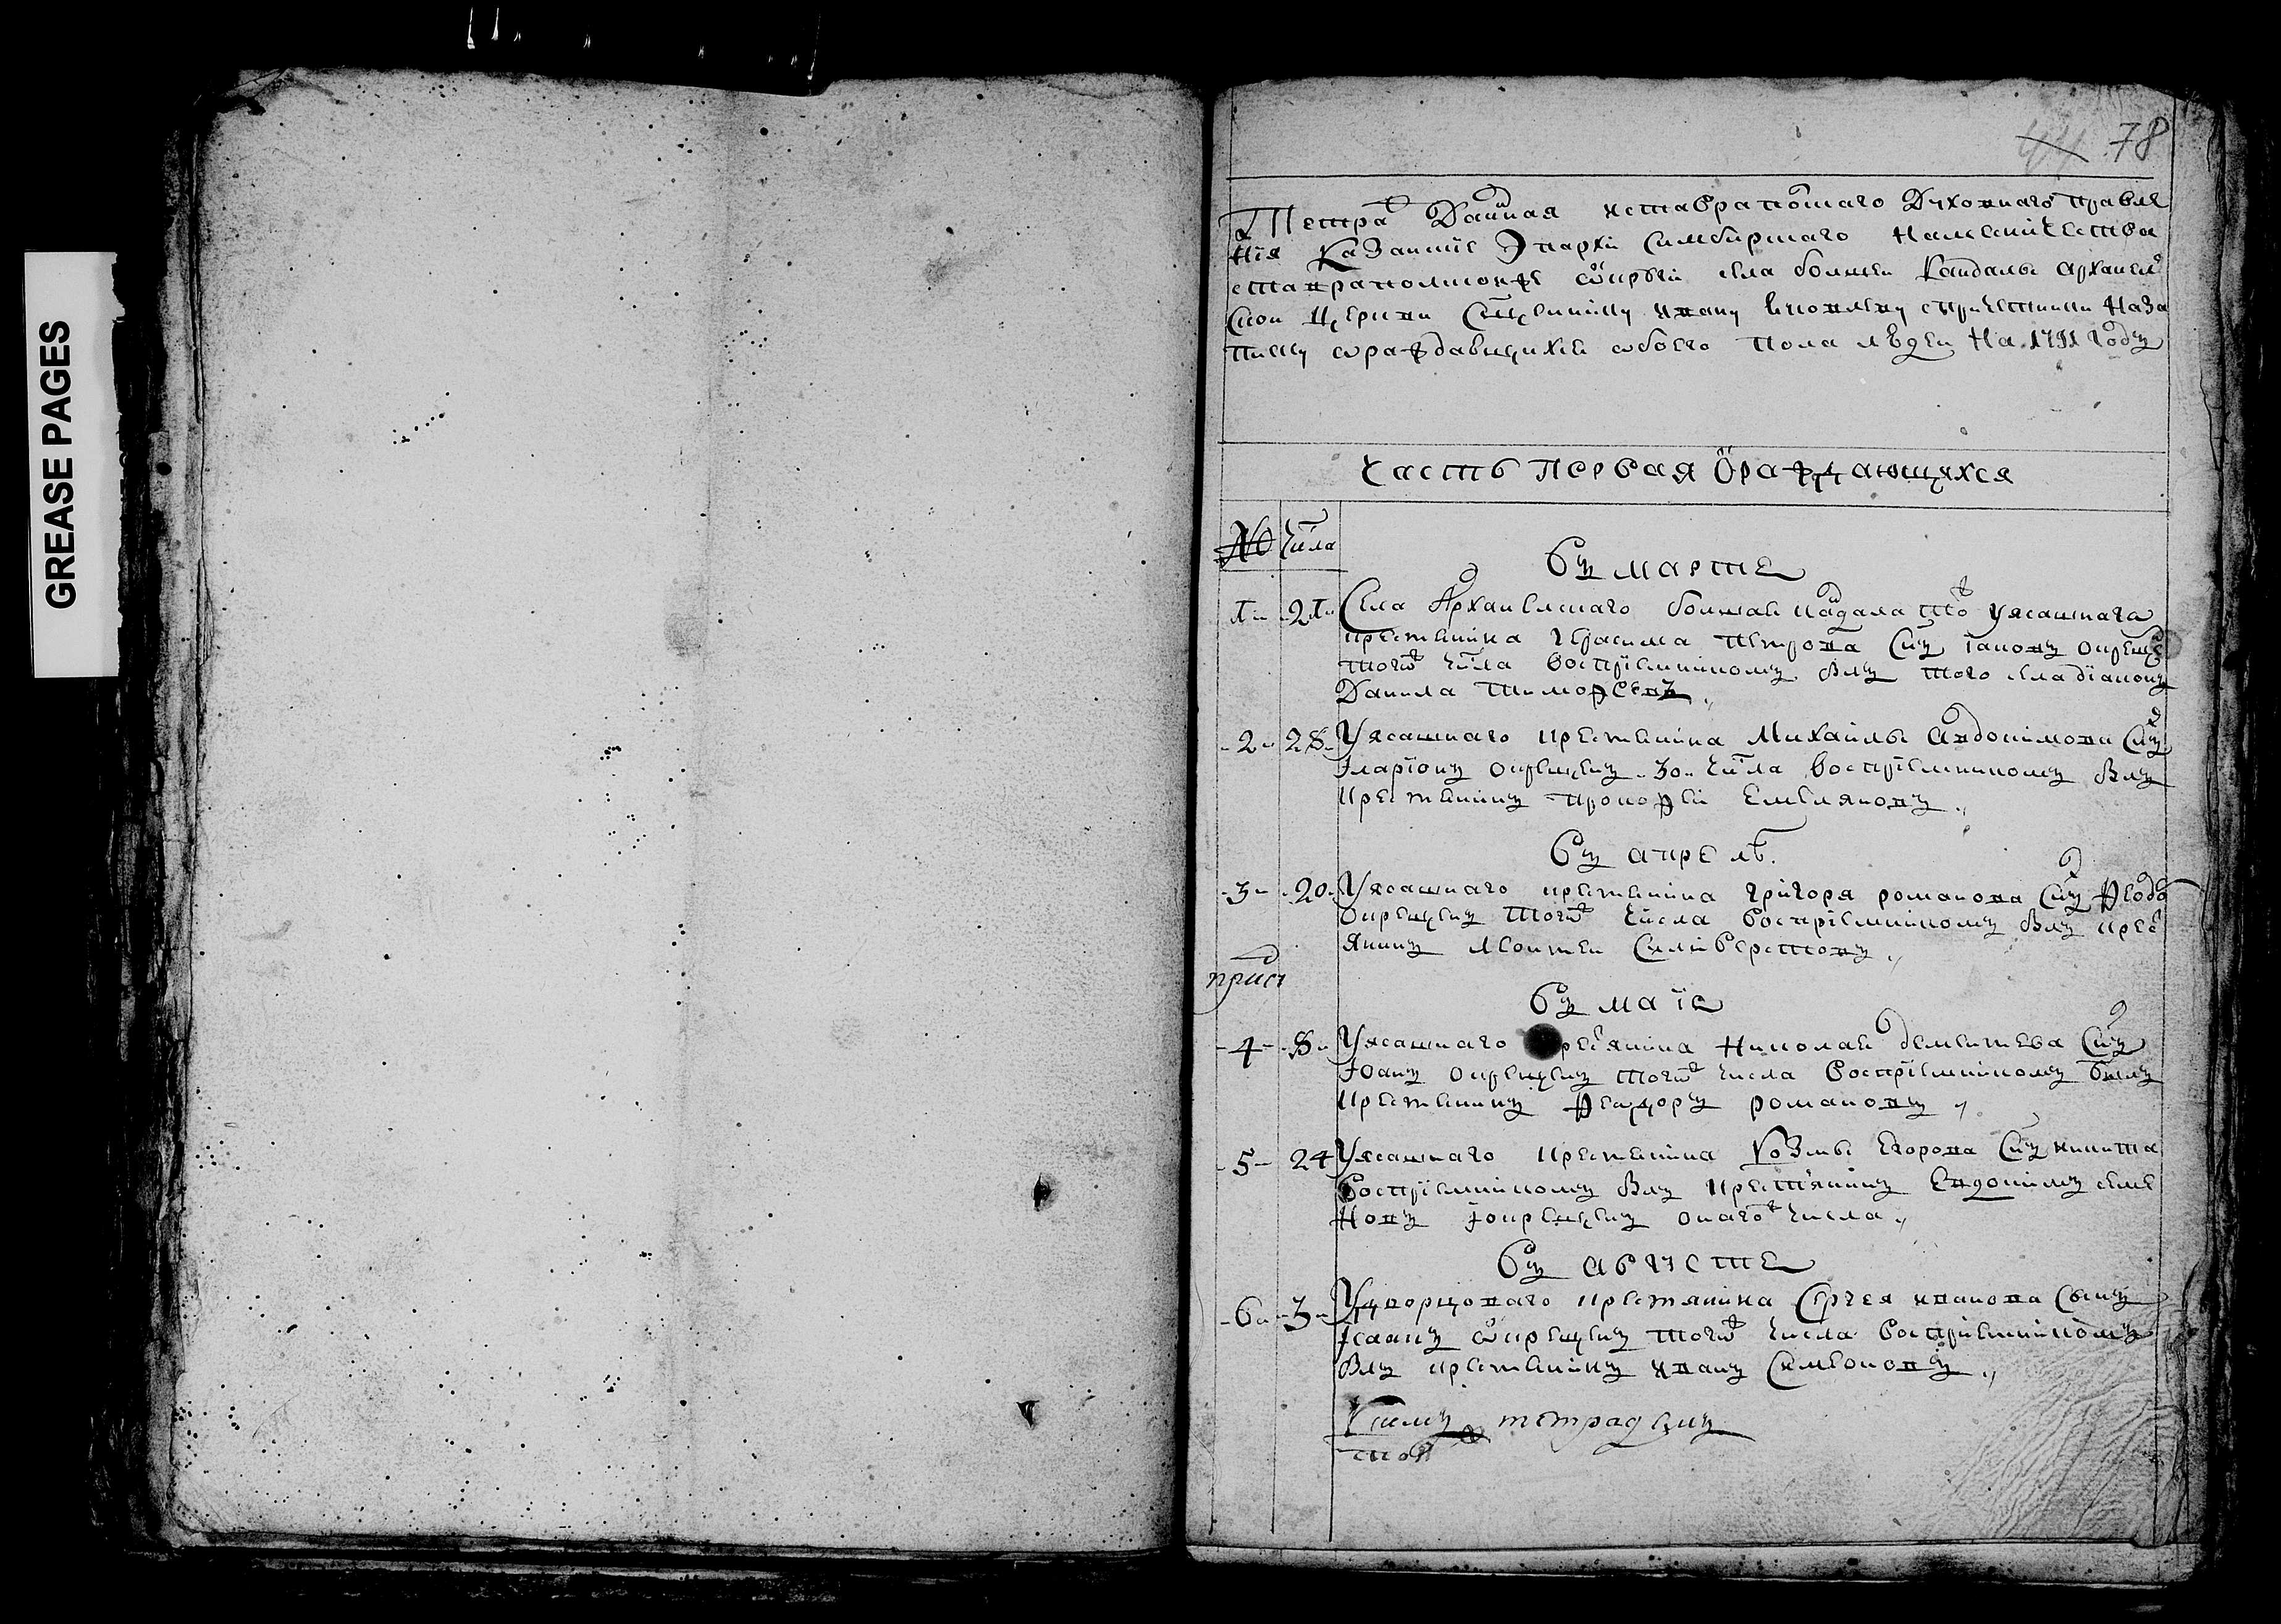 GREASE PAGES
44 78
Тетрать Данная изставрапольскаго Духовнаго правле
нїя Казанскїе Эпархїи Симбирскаго Намесничества
ставрапольской округи села болшей Кандалы Архангел
ской Церкви Священнику Ивану спричетники Наза
писку ораждающихся обоего пола людей На 1791 годъ
Часть Первая ораждающихся
№ Числа
Въ марте
1 21 Села Архангелскаго болшая кандала тож Уясашнага
крестьянина Герасима Петрова Сынъ окрещенъ
тогож числа воспрїемникомъ былъ того села дїаконъ
Данила Тимофеевъ
2 28 Уясашнаго крестьянина Михаилы Авдокимова Сынъ
Іларїонъ окрещенъ 30 числа воспрїемникомъ былъ
крестьянинъ Прокофей Емельяновъ
Въ апреле
3 20 Уясашнаго крестьянина григоря романова Сынъ Ѳеодо
окрещенъ тогож числа воспрїемникомъ былъ крес
янинъ Леонтей Силиверстовъ
прист
Въ маїе
4 8 Уясашнаго крестьянина Николая дементьева Сынъ
Іоанъ окрещенъ тогож числа воспрїемникомъ былъ
крестьянинъ Ѳеадоръ романовъ
5 24 Уясашнаго крестьянина Козмы Егорова Сынъ никита
воспрїемникомъ былъ крестьянинъ Евдокимъ семе
новъ Іокрещенъ онагож числа
Въ августе
6 3 Удворцоваго крестьянина Сергея иванова Сынъ
Ісаакъ окрещенъ тогож числа воспрїемникомъ
былъ крестьянинъ иванъ Симеоновъ
тетрадемъ